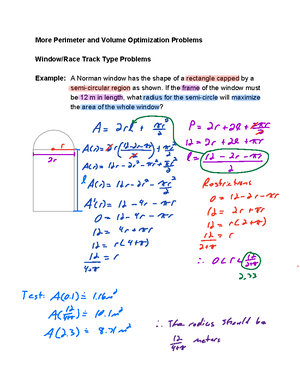 More Perimeter and Volume Optimization Problems
Window/Race Track Type Problems
Example: A Norman window has the shape of a rectangle capped by a
semi-circular region as shown. If the frame of the window must
be 12 m in length, what radius for the semi-circle will maximize
the area of the whole window?
r
2r
l
A = 2rl + πr²/2
A(r) = 2r(12-2r-πr/2) + πr²/2
A(r) = 12r - 2r² - πr² + πr²/2
A(r) = 12r - 2r² - πr²/2
A'(r) = 12 - 4r - πr
0 = 12 - 4r - πr
12 = 4r + πr
12 = r(4+π)
12/4+π = r
P = 2r + 2l + 2πr/2
12 = 2r + 2l + πr
l = 12 - 2r - πr/2
Restrictions
0 = 12 - 2r - πr
12 = 2r + πr
12 = r(2+π)
12/2+π = r
∴ 0 < r < 12/2+π
2.33
Test: A(0.1) ≐ 1.16m²
A(12/4+π) ≐ 10.1m²
A(2.3) ≐ 8.71m²
∴ The radius should be
12/4+π meters